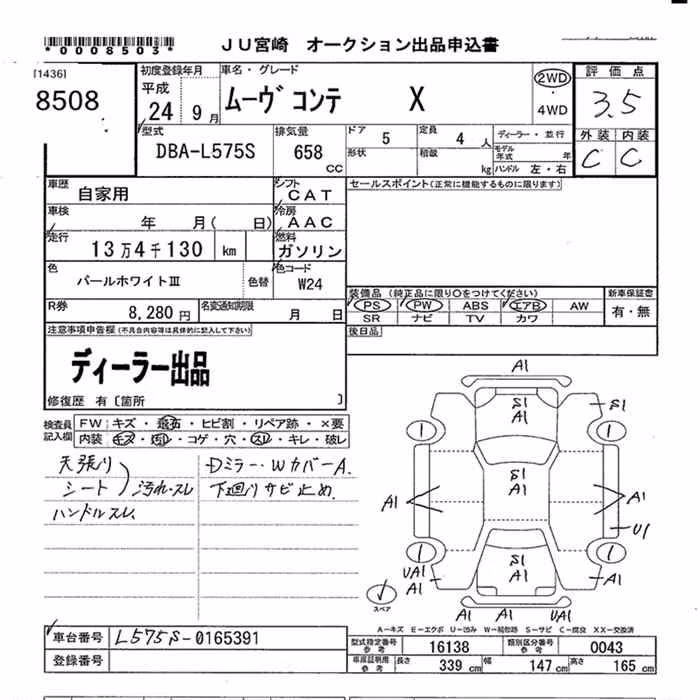 *0008503*
JU宮崎 オークション出品申込書
[1436]
8508
初度登録年月 車名・グレード
平成 24年 9月 ムーヴ コンテ X
2WD
4WD
評価点
3.5
外装 内装
C C
型式 排気量 ドア 5 定員 4人 ディーラー・並行
DBA-L575S 658 CC 形状 積載 kg モデル年式 年
ハンドル 左・右
車歴 自家用 シフト CAT セールスポイント(正常に機能するものに限ります)
車検 年 月( 日) 冷房 AAC
走行 13万4千130 km 燃料 ガソリン
色 パールホワイトIII 色替 色コード W24
R券 8,280円 名変通知期限 月 日
装備品 (純正品に限り○をつけてください) 新車保証書
PS PW ABS エアB AW 有・無
SR ナビ TV カワ
後日品
注意事項申告欄(不具合内容等は具体的に記入して下さい)
ディーラー出品
修復歴 有〔箇所 〕
検査員記入欄 FW キズ・飛石・ヒビ割・リペア跡・×要
内装 キズ・汚レ・コゲ・穴・スレ・キレ・破レ
天張り
シート 汚れ・スレ
ハンドルスレ
Dミラー・WカバーA.
下廻りサビ止め.
A1
S1
A1
S1
1 1
S1
A1
A1 A1
U1
1 1
UA1
A1
S1
A1
A1
A1 A1 UA1
スペア
A-キズ E-エクボ U-凹み W-補修跡 S-サビ C-腐食 XX-交換済
車台番号 L575S-0165391
登録番号
型式指定番号 参考 16138 類別区分番号 参考 0043
車庫証明用 参考 長さ 339 cm 幅 147 cm 高さ 165 cm